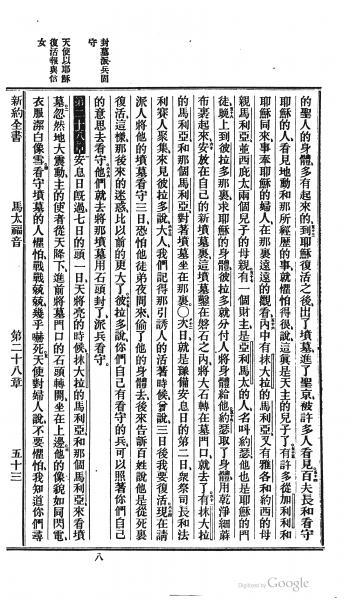 的聖人的身體多有起來的到耶穌復活之後出了墳墓進了聖京被許多人看見百夫長和看守
耶穌的人看見地動和那所經歷的事就懼怕得很說這眞是天主的兒子了有許多從加利利和
耶穌同來事奉耶穌的婦人在那裏遠遠的觀看內中有抹大拉的馬利亞又有雅各和約西的母
親馬利亞並西庇太兩個兒子的母親有一個財主是亞利馬太的人名叫約瑟他也是耶穌的門
徒晚上到彼拉多那裏求耶穌的身體彼拉多就分付人將身體給他約瑟取了身體用乾淨細蔴
布裹起來安放在自己的新墳墓裏這墳墓鑿在磐石之內將大石轉在墓門口就去了有抹大拉
的馬利亞和那個馬利亞對著墳墓坐在那裏〇次日就是豫備安息日的第二日衆祭司長和法
利賽人聚集來見彼拉多說大人我們記得那引誘人的活著時候曾說三日後我要復活現在請
派人將他的墳墓看守三日恐怕他徒弟夜間來偷了他的身體去後來告訴百姓說他是從死裏
復活這樣那後來的迷惑比以前的更大了彼拉多說你們自己有看守的兵可以照著你們自己
封墓派兵固
守
的意思去看守他們就去將那墳墓用石頭封了派兵看守
天使以耶穌
復活報與信
女
第二十八章安息日旣過七日的頭一日天將亮的時候抹大拉的馬利亞和那個馬利亞來看墳
墓忽然地大震動主的使者從天降下進前將墓門口的石頭轉開坐在上邊他的像貌如同閃電
衣服潔白像雪看守墳墓的人懼怕戰戰兢兢幾乎嚇死天使對婦人說不要懼怕我知道你們尋
新約全書 馬太福音 第二十八章 五十三
八
Digitized by Google